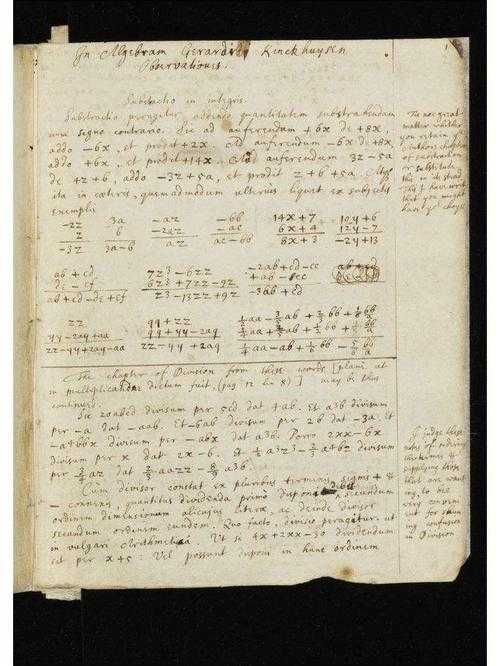 In Algebram Gerardi Kinckhuysen
Observationes.
Subductio in integris.
Substractio peragitur addendo quantitatem substrahendam
sub signo contrario. Sic ad auferendum +6x de +8x,
addo −6x, et prodit +2x. Ad auferendum −6x de +8x,
addo +6x, et prodit +14x. Et ad auferendum 3z − 5a
de +z + 6, addo −3z + 5a, et prodit
ita in cæteris, quemadmodum ulterius liquet ex subjectis
exemplis
−2z 3a −az −bb 14x+7 10y+6
z b −2az −ac 6x+4 12y−7
−3z 3a−b az ac−bb 8x+3 −2y+13
ab+cd 7z3−6zz −2ab+cd−cc
de−ef 6z3+7zz−9z +ab−cc
ab+cd−de+ef z3−13zz+9z −3ab+cd
zz yy+zz
yy−2ay+aa yy+yy−2ay
zz−yy+2ay−aa zz−yy+2ay
The chapter of Division from these words [plani at
in multiplicandis dictum fuit, (pag 12 lin 8)] may be thus
continued.
Sic 20abcd divisum per 5cd dat 4ab. Et a3b divisum
per −a dat −aab. Et −6ab divisum per 2b dat −3a. Et
−a4bbx divisum per −abx dat a3b. Porro 2xx−6x
divisum per x dat 2x−6. Et
per
Cum divisor constat ex pluribus terminis signis + &
− connexis, quantitas dividenda primo disponi debet secundum
ordinem dimensionum alicujus literæ, ac deinde divisor
secundum ordinem eundem. Quo facto, divisio peragitur ut
in vulgari Arithmetica. Ut si 4x+2xx−30 dividendum
sit per x+5: Vel possunt disponi in hunc ordinem
Tis not great
matter whether
you retain
Authors chapter
of substraction
or substitute
this in its stead.
This I have wrote
that you might
have yor choyse
I judge this
of
the terms &
supplying those
that are want
ing, to bee
very conveni
ent for shun
ing confusion
in Division